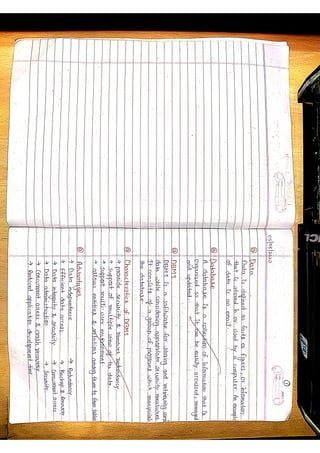 03/05/2023
① Data
Data is defined as facts or figures, or information
that is stored in or used by a computer. An example
of data is an email.
② Database
A database is a collection of information that is
organized so that it can be easily accessed, managed
and updated.
③ DBMS
DBMS is a software for storing and retrieving users'
data while considering appropriate security measures.
It consists of a group of programs which manipulate
the database.
④ Characteristics of DBMS
→ provide security & removes redundancy.
→ Support of multiple views of the data.
→ Support multi-user environment
→ entities & relations among them to form tables
⑤ Advantages
→ Data Independence
→ Efficient data access.
→ Data integrity & security
→ Data administration
→ Concurrent access & crash recovery
→ Reduced application development time
→ Redundancy
→ Backup & Recovery
→ Concurrent access
→ Security.